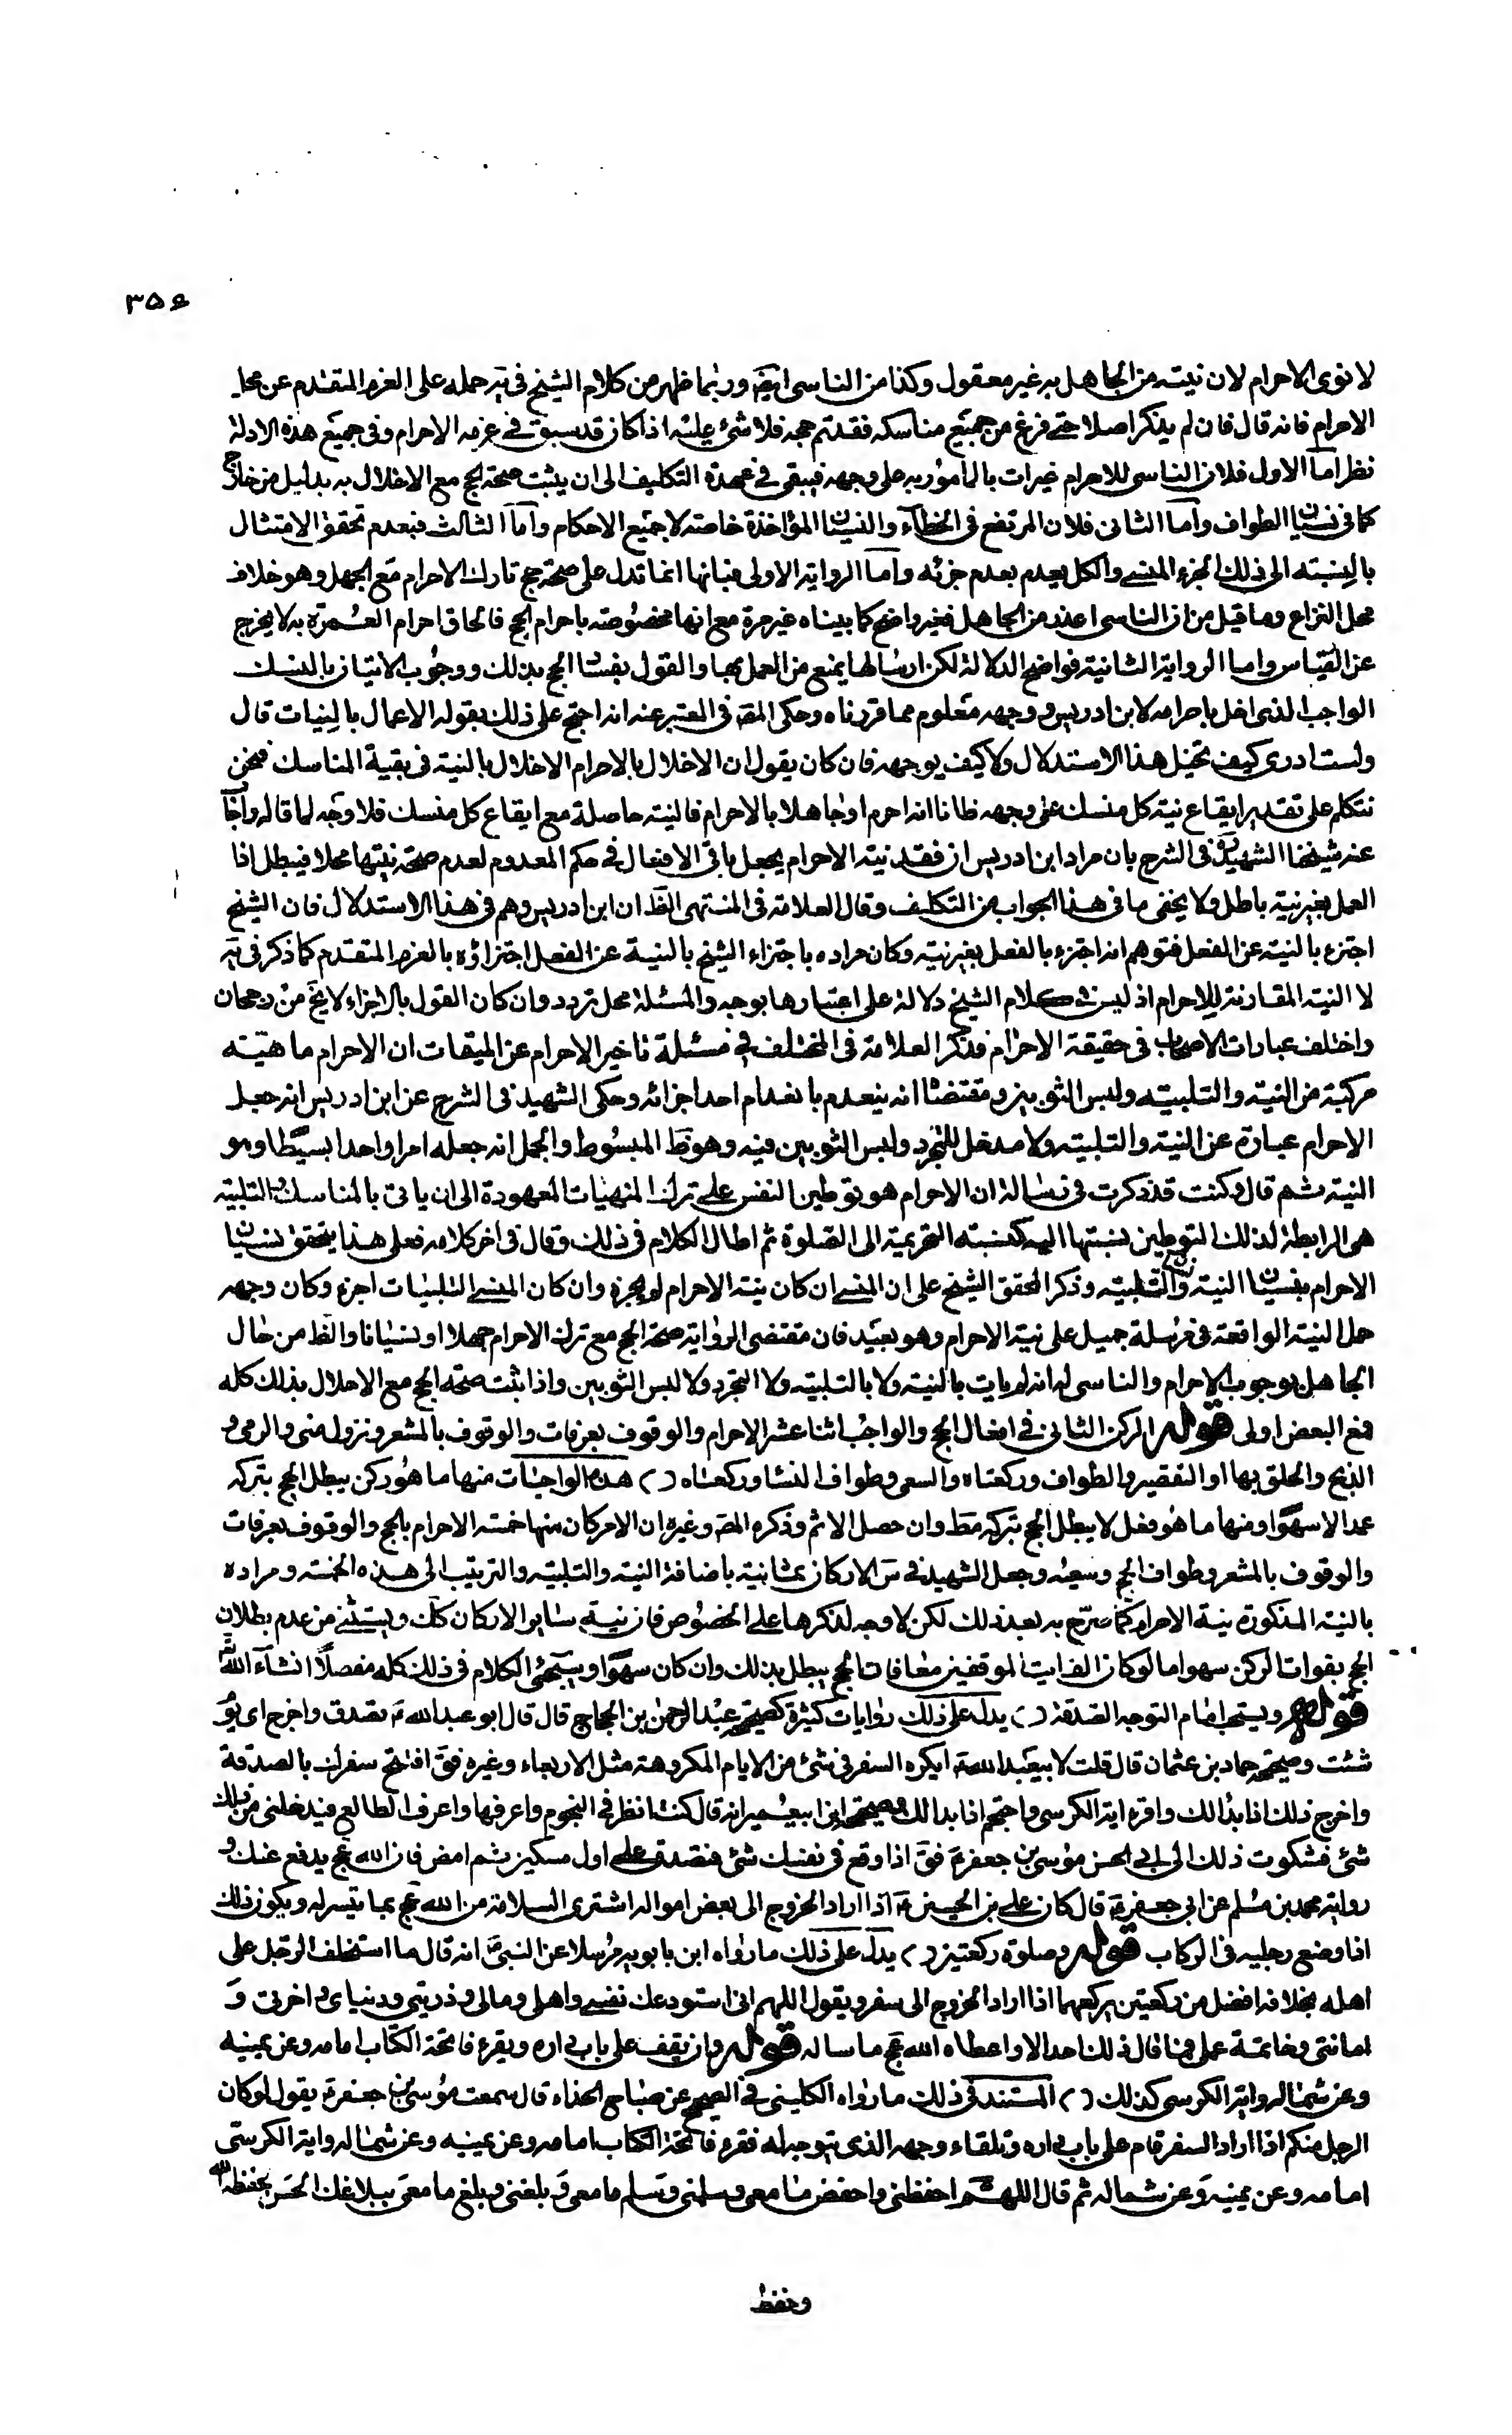 ۳۵۶
لا نوى الاحرام لان نيته من الجاهل به غير معقول وكذا من الناسى ايضا وربما ظهر من كلام الشيخ فى يه حمله على العزم المتقدم عن محل
الاحرام فانه قال فان لم يذكر اصلا حتى فرغ من جميع مناسكه فقد تم حجه فلا شئ عليه اذا كان قد سبق فى عزمه الاحرام وفى جميع هذه الادلة
نظر اما الاول فلان الناسى للاحرام غير ات بالمأمور به على وجهه فيبقى فى عهدة التكليف الى ان يثبت صحة الحج مع الاخلال به بدليل من خارج
كما فى نسيان الطواف واما الثانى فلان المرتفع فى الخطأ والنسيان المؤاخذة خاصة لا جميع الاحكام واما الثالث فبعدم تحقق الامتثال
بالنسبة الى ذلك الجزء المنسى والكل يعدم بعدم جزئه واما الرواية الاولى فبانها انما تدل على صحة حج تارك الاحرام مع الجهل وهو خلاف
محل النزاع وما قيل من ان الناسى اعذر من الجاهل فغير واضح كما بيناه غير مرة مع انها مخصوصة باحرام الحج فالحاق احرام العمرة به لا يخرج
عن القياس واما الرواية الثانية فواضح الدلالة لكن ارسالها يمنع من العمل بها والقول بفساد الحج بذلك ووجوب الاتيان بالنسك
الواجب الذى اخل باحرامه لابن ادريس ووجهه معلوم مما قررناه وحكى المصه فى المعتبر عنه انه احتج على ذلك بقوله الاعمال بالنيات قال
ولست ادرى كيف تخيل هذا الاستدلال ولا كيف يوجهه فان كان يقول ان الاخلال بالاحرام الاخلال بالنية فى بقية المناسك فنحن
نتكلم على تقدير ايقاع نية كل منسك على وجهه ظانا انه احرم او جاهلا بالاحرام فالنية حاصلة مع ايقاع كل منسك فلا وجه لما قاله واجاب
عنه شيخنا الشهيد فى الشرح بان مراد ابن ادريس ان فقد نية الاحرام يجعل باقى الافعال فى حكم المعدوم لعدم صحة نيتها محلا فيبطل اذا
العمل بغير نية باطل ولا يخفى ما فى هذا الجواب من التكليف وقال العلامة فى المنتهى الظ ان ابن ادريس وهم فى هذا الاستدلال فان الشيخ
اجتزء بالنية عن الفعل فتوهم انه اجتزء بالفعل بغير نية وكان مراده باجتزاء الشيخ بالنية عن الفعل اجتزاؤه بالعزم المتقدم كما ذكر فى يه
لا النية المقارنة للاحرام اذ ليس فى كلام الشيخ دلالة على اعتبارها بوجه والمسئلة محل تردد وان كان القول بالاجزاء لا يخ من رجحان
واختلف عبارات الاصحاب فى حقيقة الاحرام فذكر العلامة فى المختلف فى مسئلة تاخير الاحرام عن الميقات ان الاحرام ماهية
مركبة من النية والتلبية ولبس الثوبين ومقتضاه انه ينعدم بانعدام احد اجزائه وحكى الشهيد فى الشرح عن ابن ادريس انه جعل
الاحرام عبارة عن النية والتلبية ولا مدخل للتجرد ولبس الثوبين فيه وهو ظ المبسوط والجمل انه جعله امرا واحدا بسيطا وهو
النية ثم قال وكنت قد ذكرت فى رسالة ان الاحرام هو توطين النفس على ترك المنهيات المعهودة الى ان ياتى بالمناسك والتلبية
هى الرابطة لذلك التوطين نسبتها اليه كنسبة التحريمة الى الصلوة ثم اطال الكلام فى ذلك وقال فى اخر كلامه فعلى هذا يتحقق نسيان
الاحرام بنسيان النية والتلبية وذكر المحقق الشيخ على ان المنسى ان كان نية الاحرام لم يجزه وان كان المنسى التلبيات اجزء وكان وجهه
حمل النية الواقعة فى مرسلة جميل على نية الاحرام وهو بعيد فان مقتضى الرواية صحة الحج مع ترك الاحرام جهلا او نسيانا والظ من حال
الجاهل بوجوب الاحرام والناسى له انه لم يات بالنية ولا بالتلبية ولا التجرد ولا لبس الثوبين واذا ثبت صحة الحج مع الاخلال بذلك كله
فمع البعض اولى قوله الركن الثانى فى افعال الحج والواجب اثنا عشر الاحرام والوقوف بعرفات والوقوف بالمشعر ونزول منى والرمى و
الذبح والحلق بها او التقصير والطواف وركعتاه والسعى وطواف النساء وركعتاه ( ) هذه الواجبات منها ما هو ركن يبطل الحج بتركه
عمدا لا سهوا ومنها ما هو فعل لا يبطل الحج بتركه مط وان حصل الاثم وذكره المصه وغيره ان الاركان منها خمسة الاحرام بالحج والوقوف بعرفات
والوقوف بالمشعر وطواف الحج وسعيه وجعل الشهيد فى س الاركان ثمانية باضافة النية والتلبية والترتيب الى هذه الخمسة ومراده
بالنية المذكورة نية الاحرام كما صرح به بعد ذلك لكن لا وجه لذكرها على الخصوص فان نية ساير الاركان كك ويستثنى من عدم بطلان
الحج بفوات الركن سهوا ما لو كان الفايت الموقفين معا فان الحج يبطل بذلك وان كان سهوا ويجئ الكلام فى ذلك كله مفصلا انشاء الله
قوله ويستحب امام التوجه الصدقة ( ) يدل على ذلك روايات كثيرة كصحيحة عبد الرحمن بن الحجاج قال قال ابو عبد الله ع تصدق واخرج اى يوم
شئت وصحيحة حماد بن عثمان قال قلت لابيعبد الله ع ايكره السفر فى شئ من الايام المكروهة مثل الاربعاء وغيره فق افتتح سفرك بالصدقة
واخرج ذلك اذا بدالك واقرء اية الكرسى واحتجم اذا بدالك وصحيحة ابن ابيعمير انه قال كنت انظر فى النجوم واعرفها واعرف الطالع فيدخلنى من ذلك
شئ فشكوت ذلك الى ابى الحسن موسى بن جعفر ع فق اذا وقع فى نفسك شئ فتصدق على اول مسكين ثم امض فان الله عج يدفع عنك و
رواية محمد بن مسلم عن ابى جعفر ع قال كان على بن الحسين ع اذا اراد الخروج الى بعض امواله اشترى السلامة من الله عج بما تيسر له ويكون ذلك
اذا وضع رجليه فى الركاب قوله وصلوة ركعتين ( ) يدل على ذلك ما رواه ابن بابويه مرسلا عن النبى ص انه قال ما استخلف الرجل على
اهله بخلافة افضل من ركعتين يركعهما اذا اراد الخروج الى سفر ويقول اللهم انى استودعك نفسى واهلى ومالى وذريتى ودنياى واخرتى و
امانتى وخاتمة عملى فما قال ذلك احد الا واعطاه الله عج ما ساله قوله وان يقف على باب داره ويقرء فاتحة الكتاب امامه وعن يمينه
وعن شماله واية الكرسى كذلك ( ) المستند فى ذلك ما رواه الكلينى فى الصحيح عن صباح الحذاء قال سمعت موسى بن جعفر ع يقول لو كان
الرجل منكم اذا اراد السفر قام على باب داره وتلقاء وجهه الذى يتوجه له فقرء فاتحة الكتاب امامه وعن يمينه وعن شماله واية الكرسى
امامه وعن يمينه وعن شماله ثم قال اللهم احفظنى واحفظ ما معى وسلمنى وسلم ما معى وبلغنى وبلغ ما معى ببلاغك الحسن لحفظه الله
وحفظ